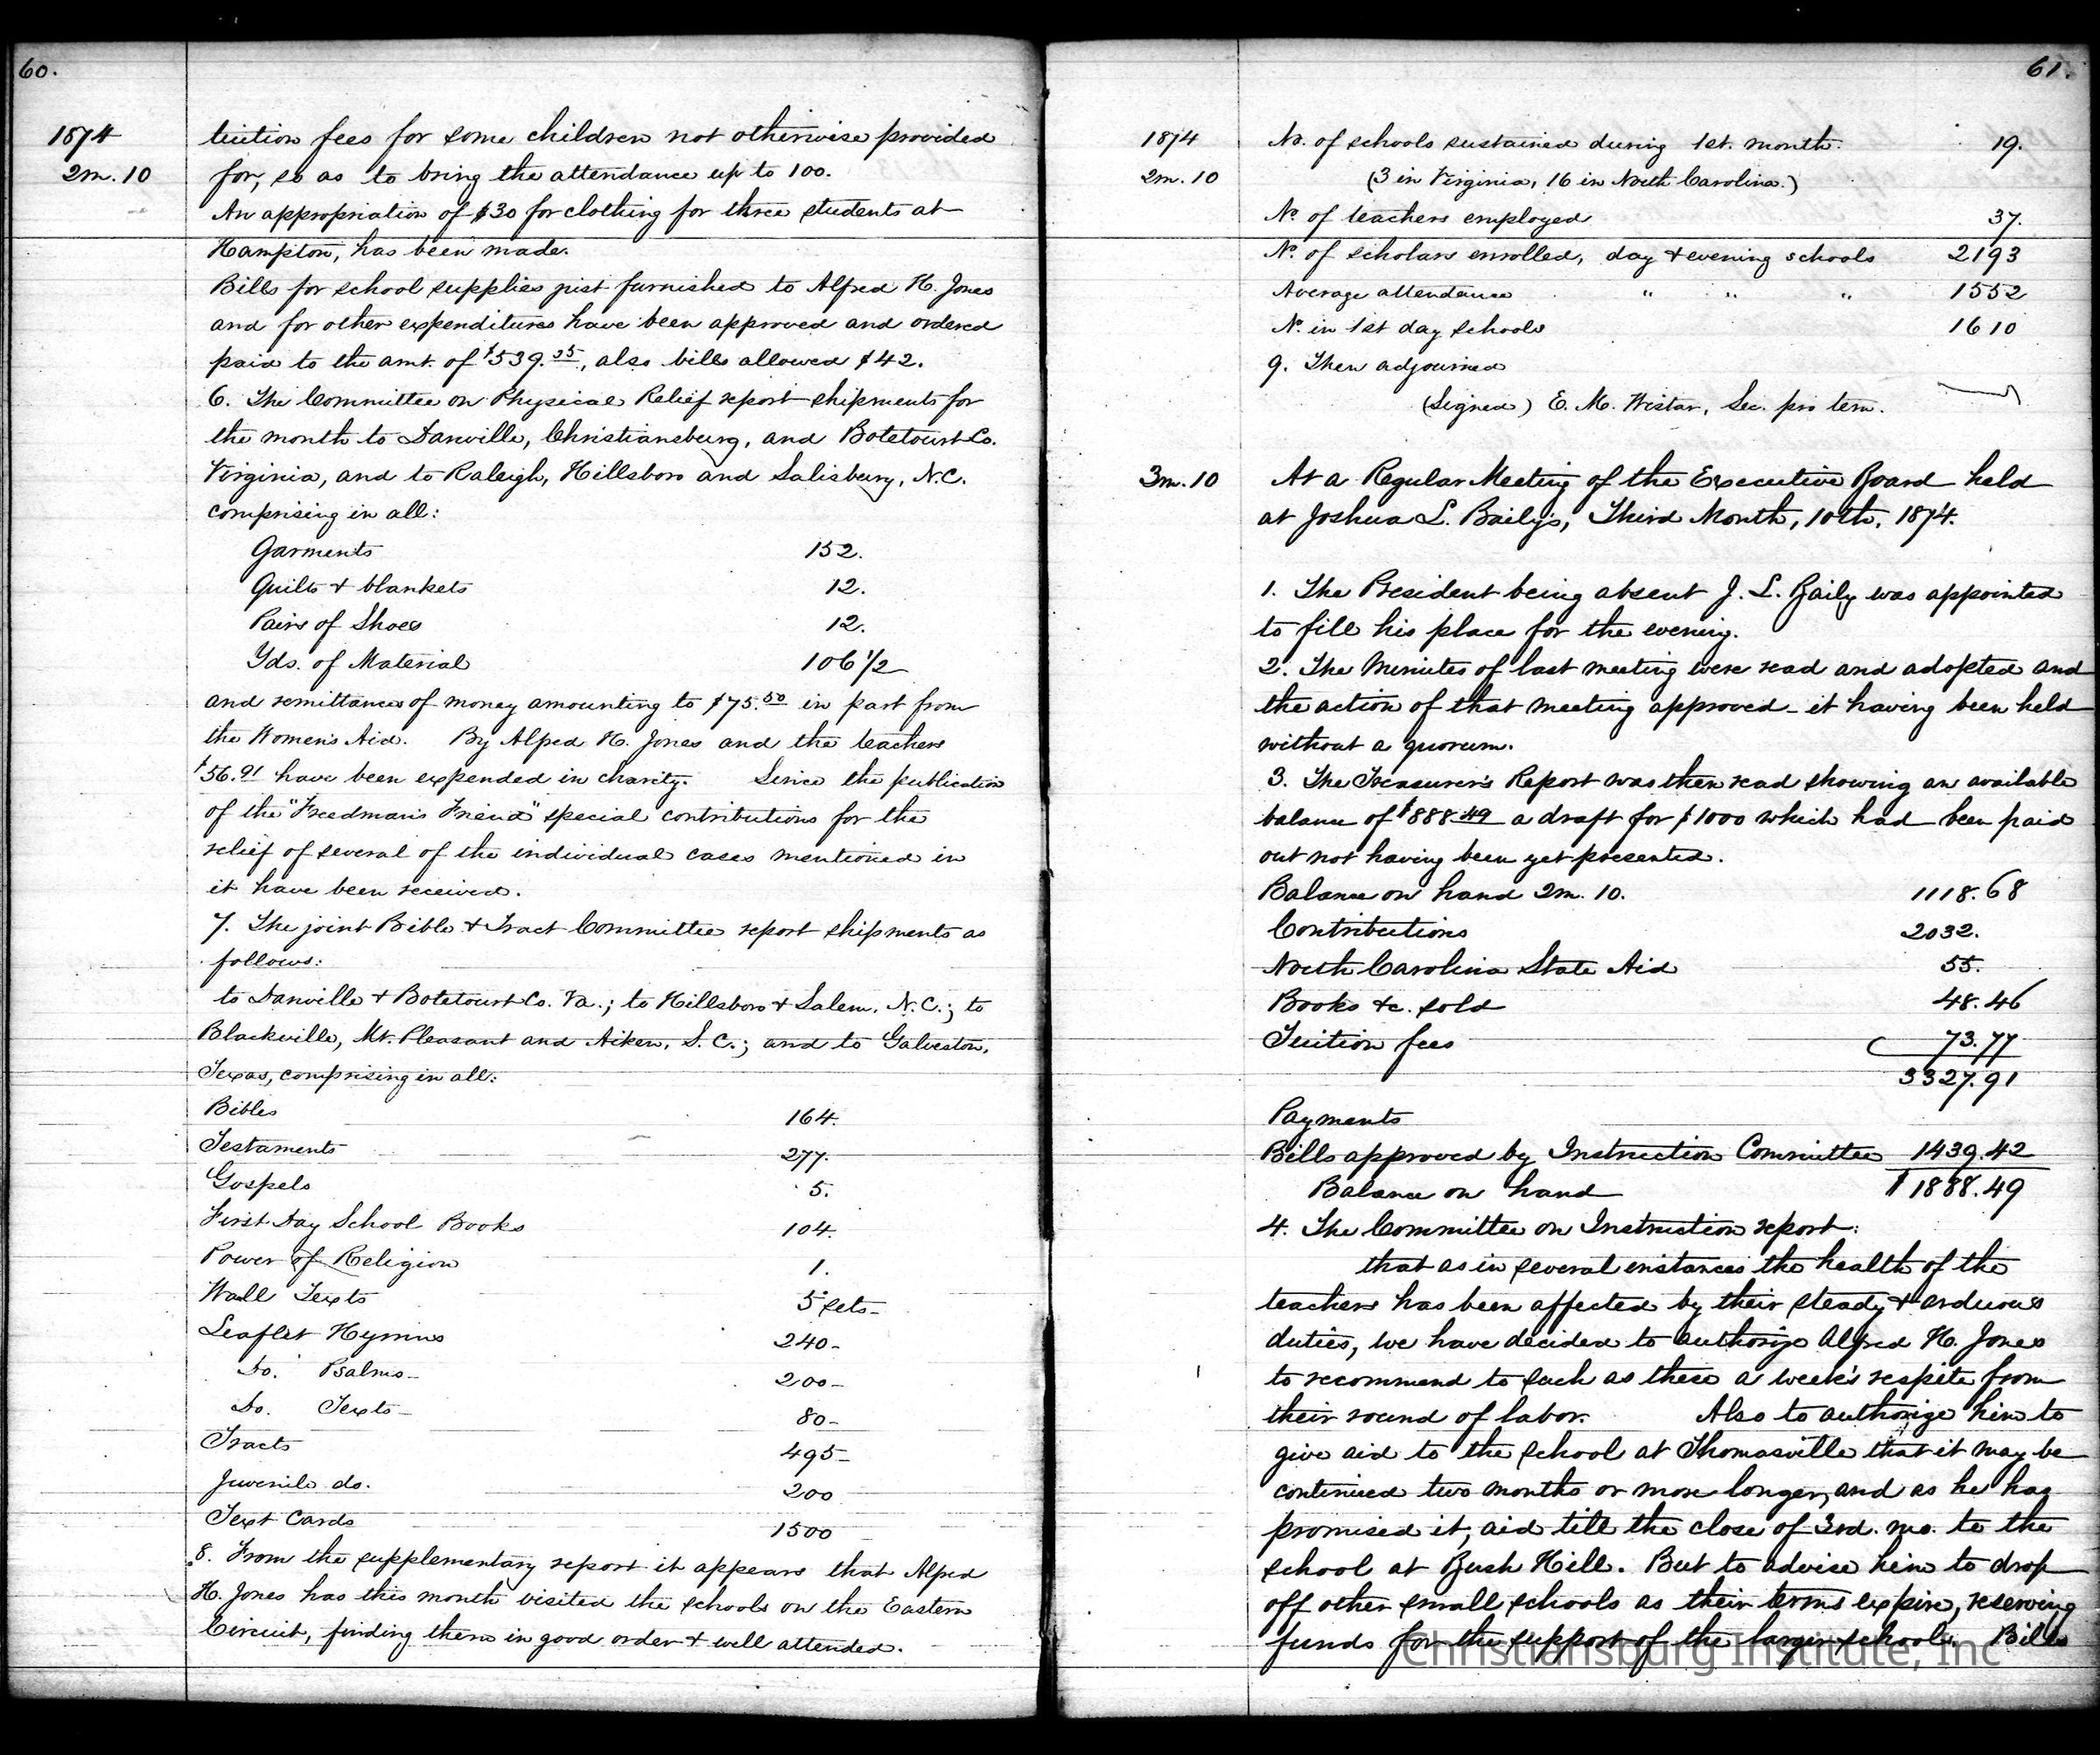 60.
1874
2m. 10
tuition fees for some children not otherwise provided
for, so as to bring the attendance up to 100.
An appropriation of $30 for clothing for three students at
Hampton, has been made.
Bills for school supplies just furnished to Alfred H. Jones
and for other expenditures have been approved and ordered
paid to the amt. of $539.35, also bills allowed $42.
6. The Committee on Physical Relief report shipments for
the month to Danville, Christiansburg, and Botetourt Co.
Virginia, and to Raleigh, Hillsboro and Salisbury, N.C.
comprising in all:
Garments 152.
Quilts & blankets 12.
Pairs of Shoes 12.
Yds. of Material 106 1/2
and remittances of money amounting to $75.50 in part from
the Women's Aid. By Alfred H. Jones and the teachers
$56.91 have been expended in charity. Since the publication
of the "Freedman's Friend" special contributions for the
relief of several of the individual cases mentioned in
it have been received.
7. The joint Bible & Tract Committee report shipments as
follows:
to Danville & Botetourt Co. Va.; to Hillsboro & Salem, N.C.; to
Blackville, Mt. Pleasant and Aiken, S.C.; and to Galveston,
Texas, comprising in all:
Bibles 164.
Testaments 277.
Gospels 5.
First Day School Books 104.
Power of Religion 1.
Wall Texts 5 sets-
Leaflet Hymns 240-
Do. Psalms- 200-
Do. Texts- 80-
Tracts 495-
Juvenile do. 200
Text Cards 1500
8. From the supplementary report it appears that Alfred
H. Jones has this month visited the schools on the Eastern
Circuit, finding them in good order & well attended.
61.
1874
2m. 10
No. of schools sustained during 1st. month. 19.
(3 in Virginia, 16 in North Carolina.)
No. of teachers employed 37.
No. of scholars enrolled, day & evening schools 2193
Average attendance " " " 1552
No. in 1st day schools 1610
9. Then adjourned
(Signed) E. M. Wistar, Sec. pro tem.
3m. 10
At a Regular Meeting of the Executive Board held
at Joshua L. Baily's, Third Month, 10th, 1874.
1. The President being absent J. L. Baily was appointed
to fill his place for the evening.
2. The Minutes of last meeting were read and adopted and
the action of that meeting approved - it having been held
without a quorum.
3. The Treasurer's Report was then read showing an available
balance of $888.49 a draft for $1000 which had been paid
out not having been yet presented.
Balance on hand 2m. 10. 1118.68
Contributions 2032.
North Carolina State Aid 55.
Books &c. sold 48.46
Tuition fees 73.77
3327.91
Payments
Bills approved by Instruction Committee 1439.42
Balance on hand $1888.49
4. The Committee on Instruction report:
that as in several instances the health of the
teachers has been affected by their steady & arduous
duties, we have decided to authorize Alfred H. Jones
to recommend to such as these a week's respite from
their round of labor. Also to authorize him to
give aid to the school at Thomasville that it may be
continued two months or more longer, and as he has
promised it, aid till the close of 3rd. mo. to the
school at Bush Hill. But to advise him to drop
off other small schools as their terms expire, reserving
funds for the support of the larger schools. Bills
Christiansburg Institute, Inc